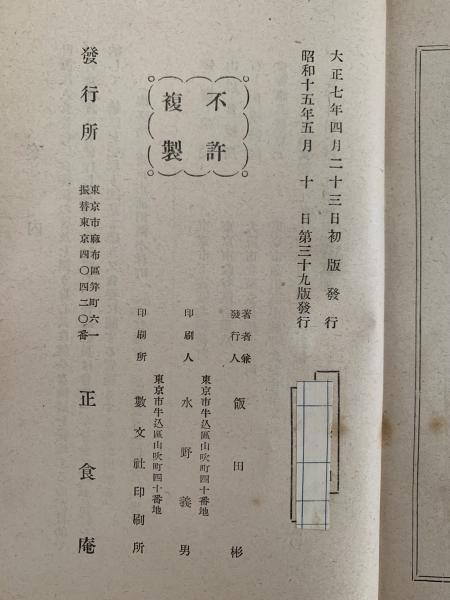 大正七年四月二十三日初版發行
昭和十五年五月十日第三十九版發行
不許
複製
著者兼
發行人 飯田彬
東京市牛込區山吹町四十番地
印刷人 水野義男
東京市牛込區山吹町四十番地
印刷所 數文社印刷所
發行所
東京市麻布區笄町六一
振替東京四〇四二〇番
正食庵